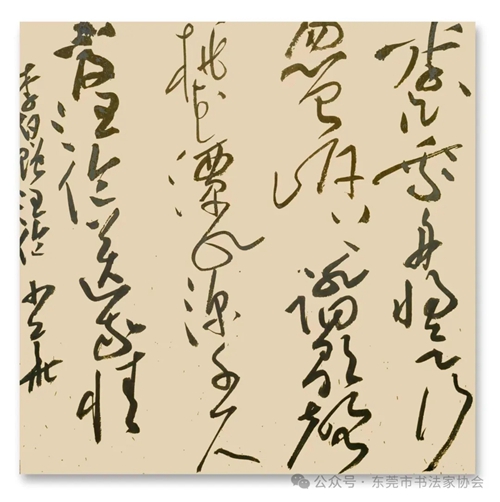 李白乘舟将欲行
忽闻岸上踏歌声
桃花潭水深千尺
不及汪伦送我情
李白赠汪伦
公众号·东莞市书法家协会